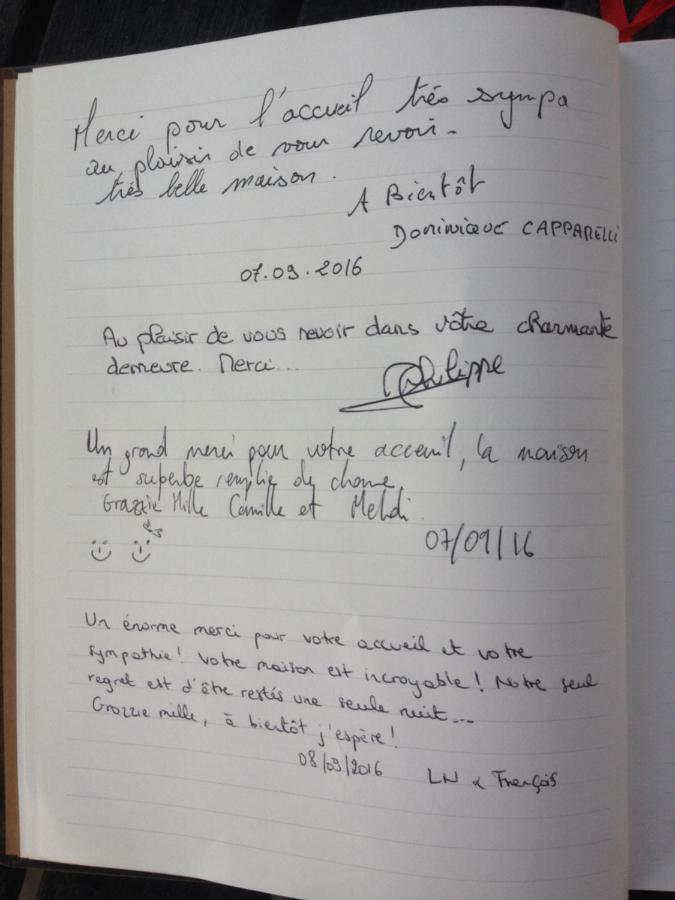 Merci pour l'accueil très sympa
au plaisir de vous revoir-
très belle maison.
A Bientôt
Dominique CAPPARELLI
07.09.2016
Au plaisir de vous revoir dans vôtre charmante
demeure. Merci...
Philippe
Un grand merci pour votre acceuil, la maison
est superbe remplie de charme.
Grazzie Mille Camille et Mehdi.
07/09/16
Un énorme merci pour votre accueil et votre
sympathie! Votre maison est incroyable! Notre seul
regret est d'être restés une seule nuit...
Grazzie mille, à bientôt j'espère!
08/09/2016
LN & François